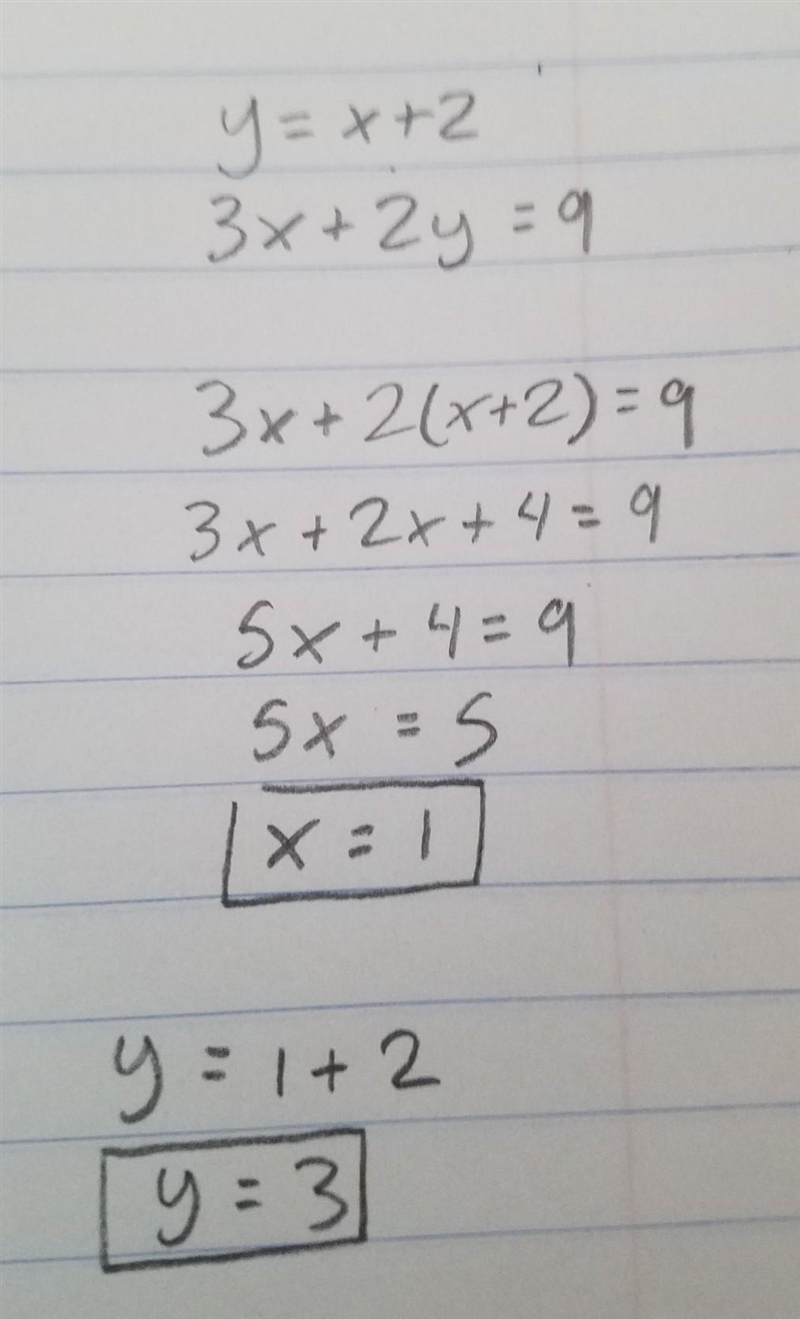 y = x+2
3x + 2y = 9
3x + 2(x+2) = 9
3x + 2x + 4 = 9
5x + 4 = 9
5x = 5
x = 1
y = 1 + 2
y = 3